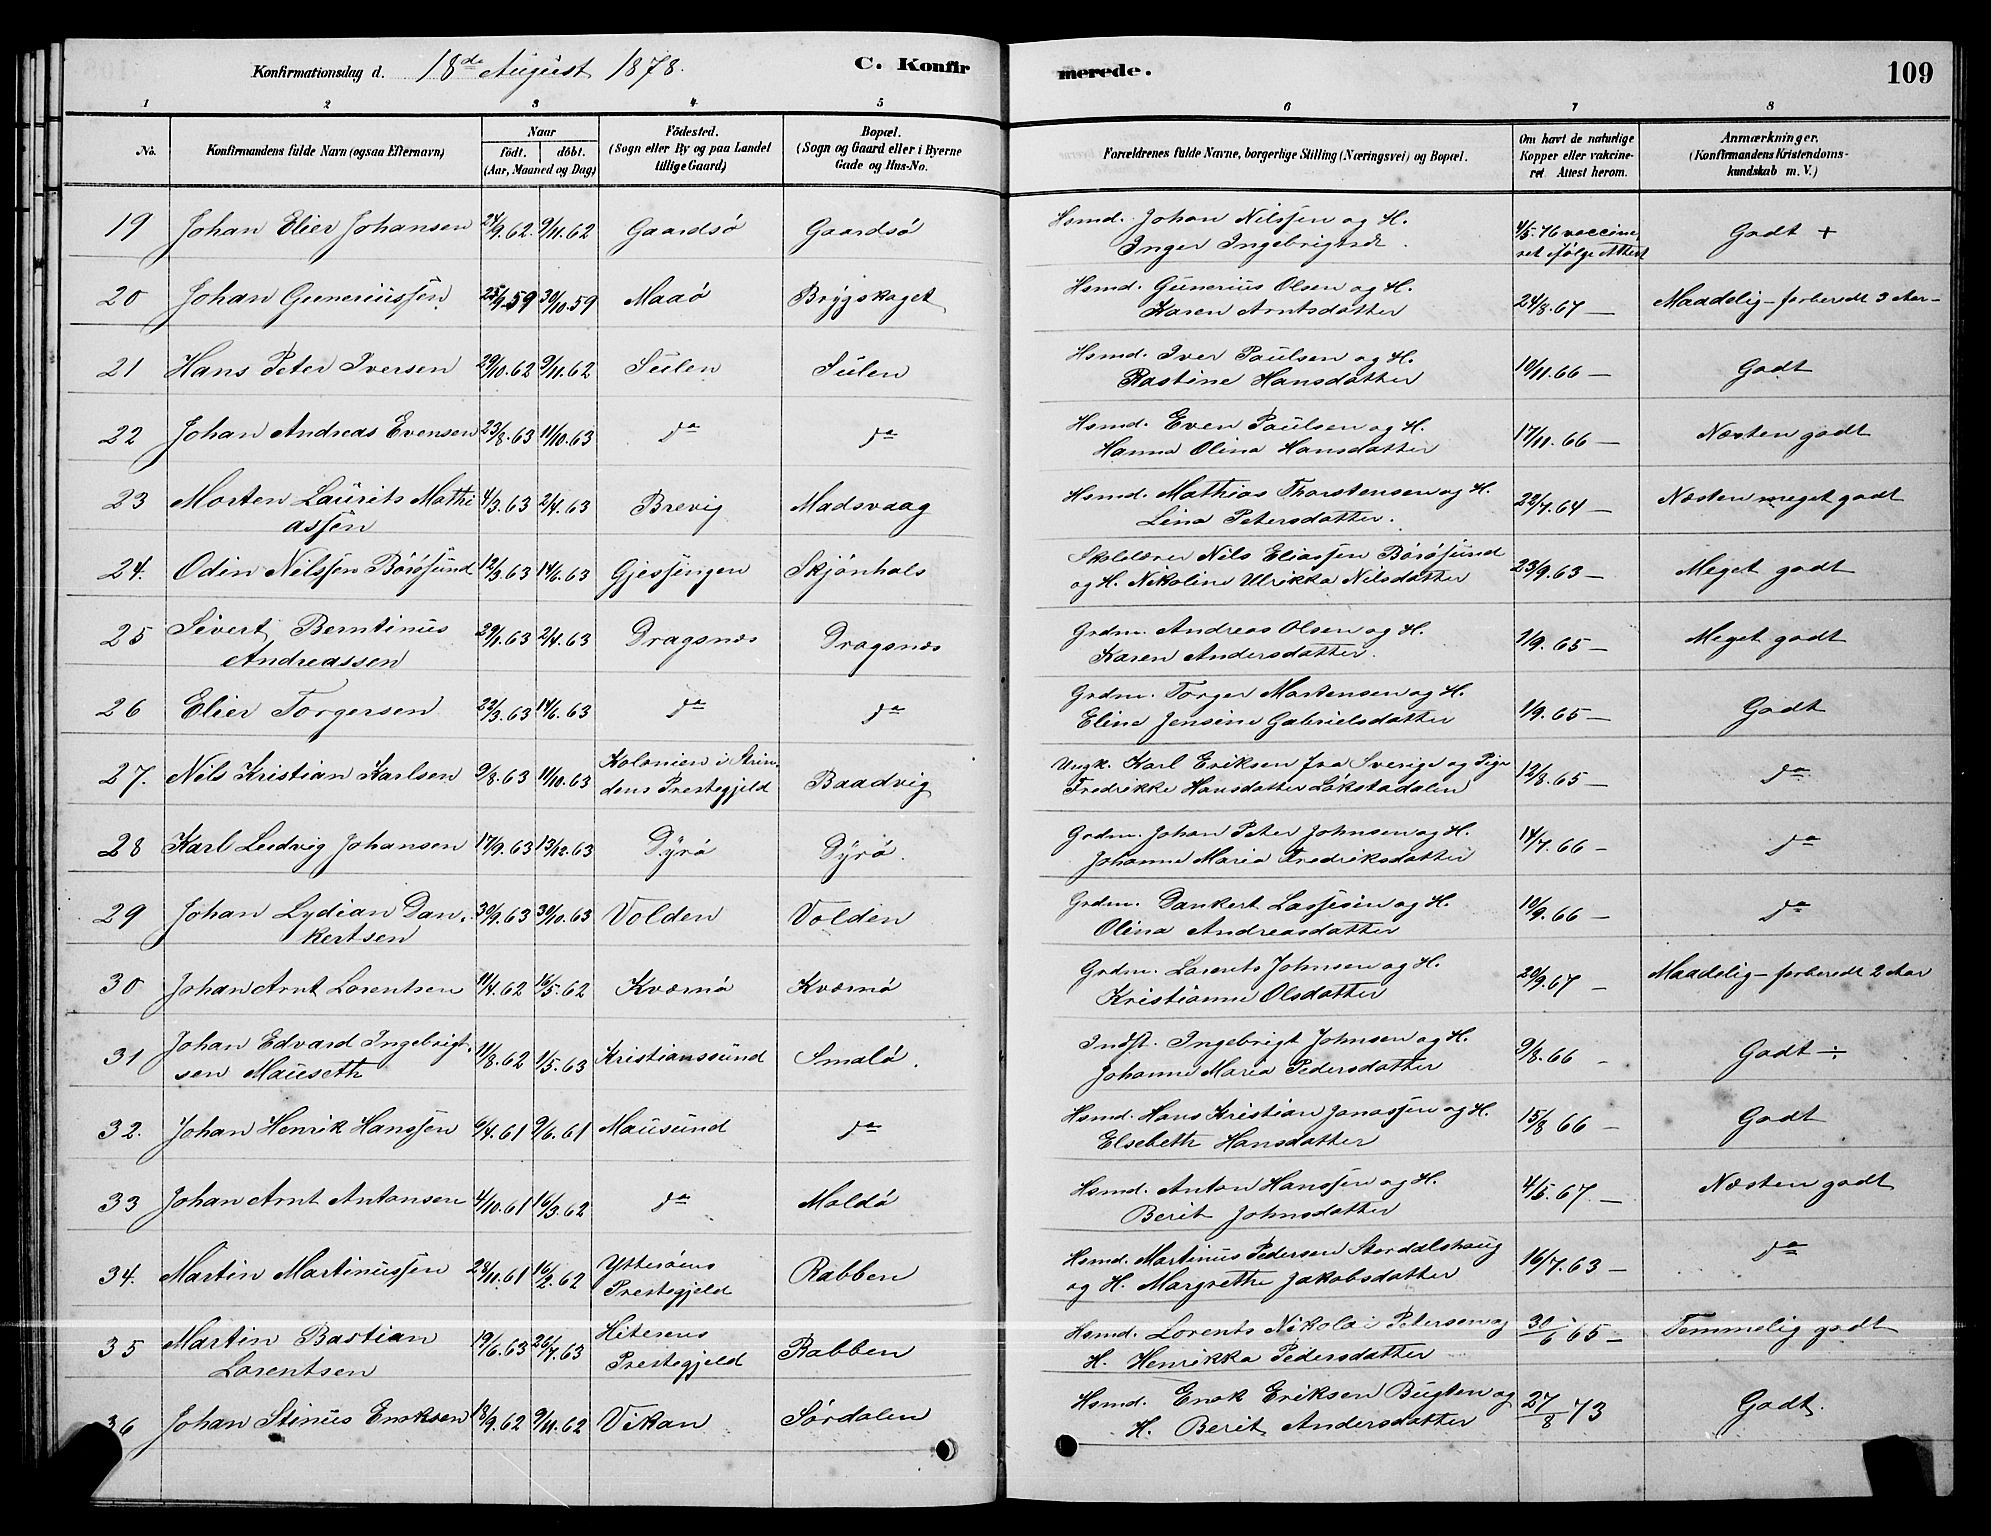 Konfirmationsdag d. 18de August 1878.
C. Konfirmerede.
109
1 2 3 4 5 6 7 8
No.
Konfirmandens fulde Navn (ogsaa Efternavn)
Naar
födt. döbt.
(Aar, Maaned og Dag)
Födested.
(Sogn eller By og paa Landet
tillige Gaard)
Bopæl.
(Sogn og Gaard eller i Byerne
Gade og Hus-No.
Forældrenes fulde Navne, borgerlige Stilling (Næringsvei) og Bopæl.
Om havt de naturlige
Kopper eller vakcine-
ret Attest herom.
Anmærkninger.
(Konfirmandens Kristendoms-
kundskab m. V.)
19 Johan Elier Johansen 24/9.62. 9/11.62 Gaardsö Gaardsö Hsmd. Johan Nilssen og H. 4/5.76 vaccine- Godt +
Inger Ingebrigtsdr. ret ifølge Attest
20 Johan Guneriussen 25/9.59 30/10.59 Maaö Brygskaget Hsmd. Gunerius Olsen og H. 24/8.67 — Maadelig – forberedt 3 Aar –
Karen Arntsdatter
21 Hans Peter Iversen 29/10.62 9/11.62 Sulen Sulen Hsmd. Iver Paulsen og H. 10/11.66 — Godt
Rastine Hansdatter
22 Johan Andreas Evensen 23/8.63 11/10.63 do do Hsmd. Even Paulsen og H. 17/11.66 — Næsten godt
Hanna Olina Hansdatter
23 Morten Laurits Mathi 4/3.63 2/4.63 Brevig Madsvaag Hsmd. Mathias Thorstensen og H. 22/7.64 — Næsten meget godt
assen Lina Petersdatter.
24. Odin Nilssen Börösund 12/3.63 14/6.63 Gjessingen Skjönhals Skolelærer Nils Eliassen Börösund 23/9.63 — Meget godt
og H. Nikoline Ulrikka Nilsdatter
25 Sivert Berntinus 29/1.63 2/4.63 Dragsnæs Dragsnæs Grdm. Andreas Olsen og H. 1/9.65 — Meget godt
Andreassen Karen Andersdatter.
26 Elier Torgersen 22/3.63 14/6.63 do do Grdm. Torger Martensen og H. 1/9.65 — Godt
Eline Jensine Gabrielsdatter
27. Nils Kristian Karlsen 9/8.63 11/10.63 Kolonien i Strin- Baadvig Ungk. Karl Eriksen fra Sverige og Pige 12/8.65 — do
dens Prestegjeld Fredrikke Hansdatter Lökstadalen
28 Karl Ludvig Johansen 17/9.63 13/12.63 Dyrö Dyrö. Grdm. Johan Peter Johnsen og H. 14/7.66 – do
Johanne Maria Fredriksdatter
29 Johan Lydian Dan- 30/9.63 30/10.63 Volden Volden Grdm. Dankert Lassesen og H. 10/9.66 — do
kertsen Olina Andreasdatter
30 Johan Arnt Lorentsen 11/4.62 16/5.62 Kværnö Kværnö Grdm. Lorents Johnsen og H. 20/9.67 – Maadelig – forberedt 2 Aar
Kristianne Olsdatter
31 Johan Edvard Ingebrigt- 11/8.62 1/5.63 Kristianssund Smalö. Indst. Ingebrigt Johnsen og H. 9/8.66 – Godt ÷
sen Mauseth Johanne Maria Pedersdatter
32. Johan Henrik Hanssen 6/4.61 9/6.61 Mausund do Hsmd. Hans Kristian Jonassen og H. 15/8 66 – Godt
Elsebeth Hansdatter
33 Johan Arnt Antonsen 4/10.61 16/3.62 do Moldö Hsmd. Anton Hanssen og H. 4/5.67. — Næsten godt
Berit Johnsdatter
34. Martin Martinussen 28/11.61 16/2.62 Ytteröens Rabben Hsmd. Martinus Pedersen Stordalshaug 16/7.63 – do
Prestegjeld og H. Margrethe Jakobsdatter
35 Martin Bastian 19/6.63 26/7.63 Hiterens Rabben Hsmd. Lorents Nikolai Petersen og 30/6 65 – Temmelig godt
Lorentsen Prestegjeld H. Henrikka Pedersdatter
36 Johan Stinus Enoksen 18/9.62 9/11.62 Vikan Sördalen Hsmd. Enok Eriksen Bugten og 27/8 73 Godt.
H. Berit Andersdatter